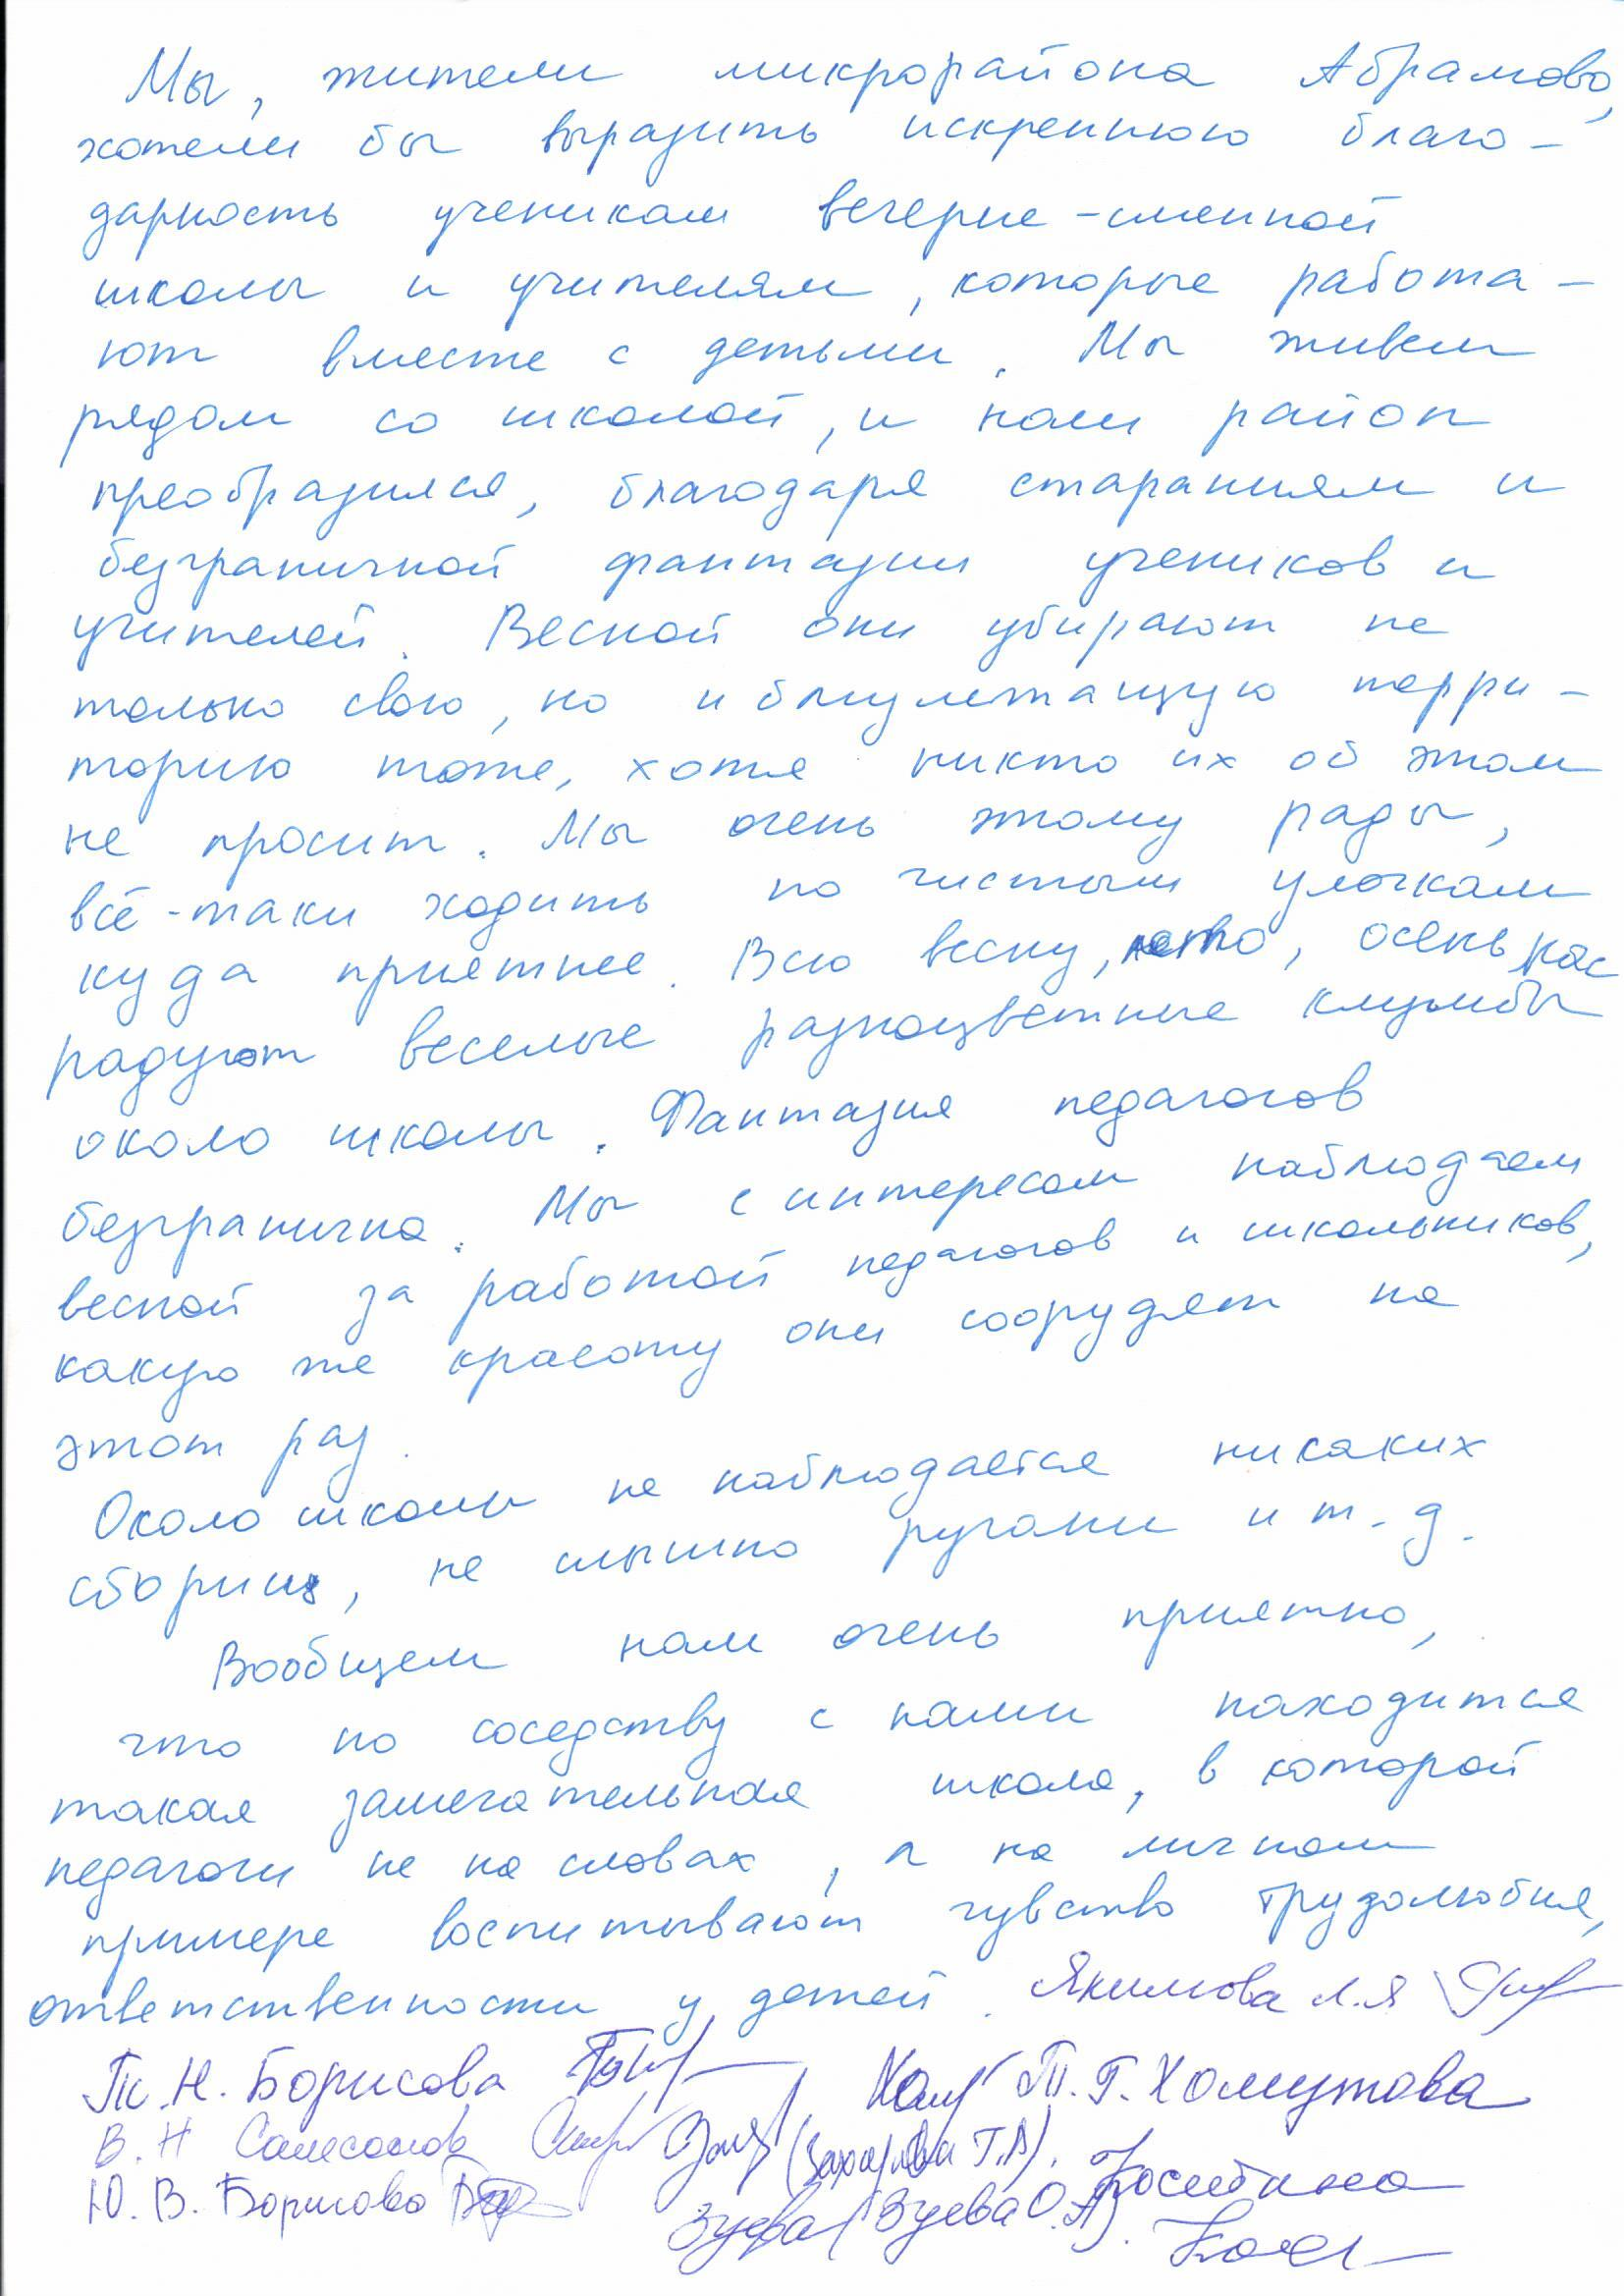 Мы, жители микрорайона Абрамово,
хотели бы выразить искреннюю благо-
дарность ученикам вечерне-сменной
школы и учителям, которые работа-
ют вместе с детьми. Мы живем
рядом со школой, и наш район
преобразился, благодаря стараниям и
безграничной фантазии учеников и
учителей. Весной они убирают не
только свою, но и близлежащую терри-
торию тоже, хотя никто их об этом
не просит. Мы очень этому рады,
всё-таки ходить по чистым улочкам
куда приятнее. Всю весну, лето, осень нас
радуют веселые разноцветные клумбы
около школы. Фантазия педагогов
безгранична. Мы с интересом наблюдаем
весной за работой педагогов и школьников,
какую же красоту они соорудят на
этот раз.
Около школы не наблюдается никаких
сборищ, не слышно ругани и т.д.
Вообщем нам очень приятно,
что по соседству с нами находится
такая замечательная школа, в которой
педагоги не на словах, а на личном
примере воспитывают чувство трудолюбия,
ответственности у детей. Якимова Л.Я
Н. Борисова Т.Г. Хомутова
В.Н Самсонова (Захарова Т.А).
Ю.В. Борисова Зуева (Зуева О.А).